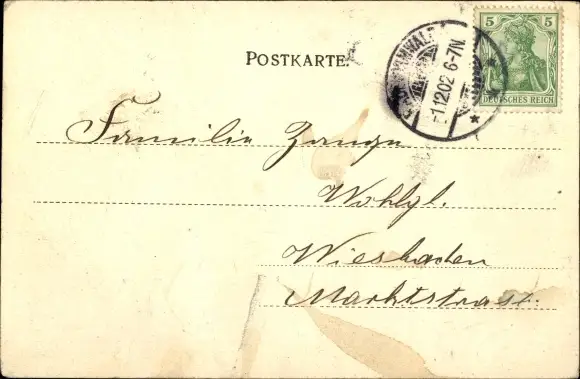 POSTKARTE.
5 5
DEUTSCHES REICH
1.12.02 6-7N.
Familie Zange
Wohlgl.
Wiesbaden
Marktstrasse.